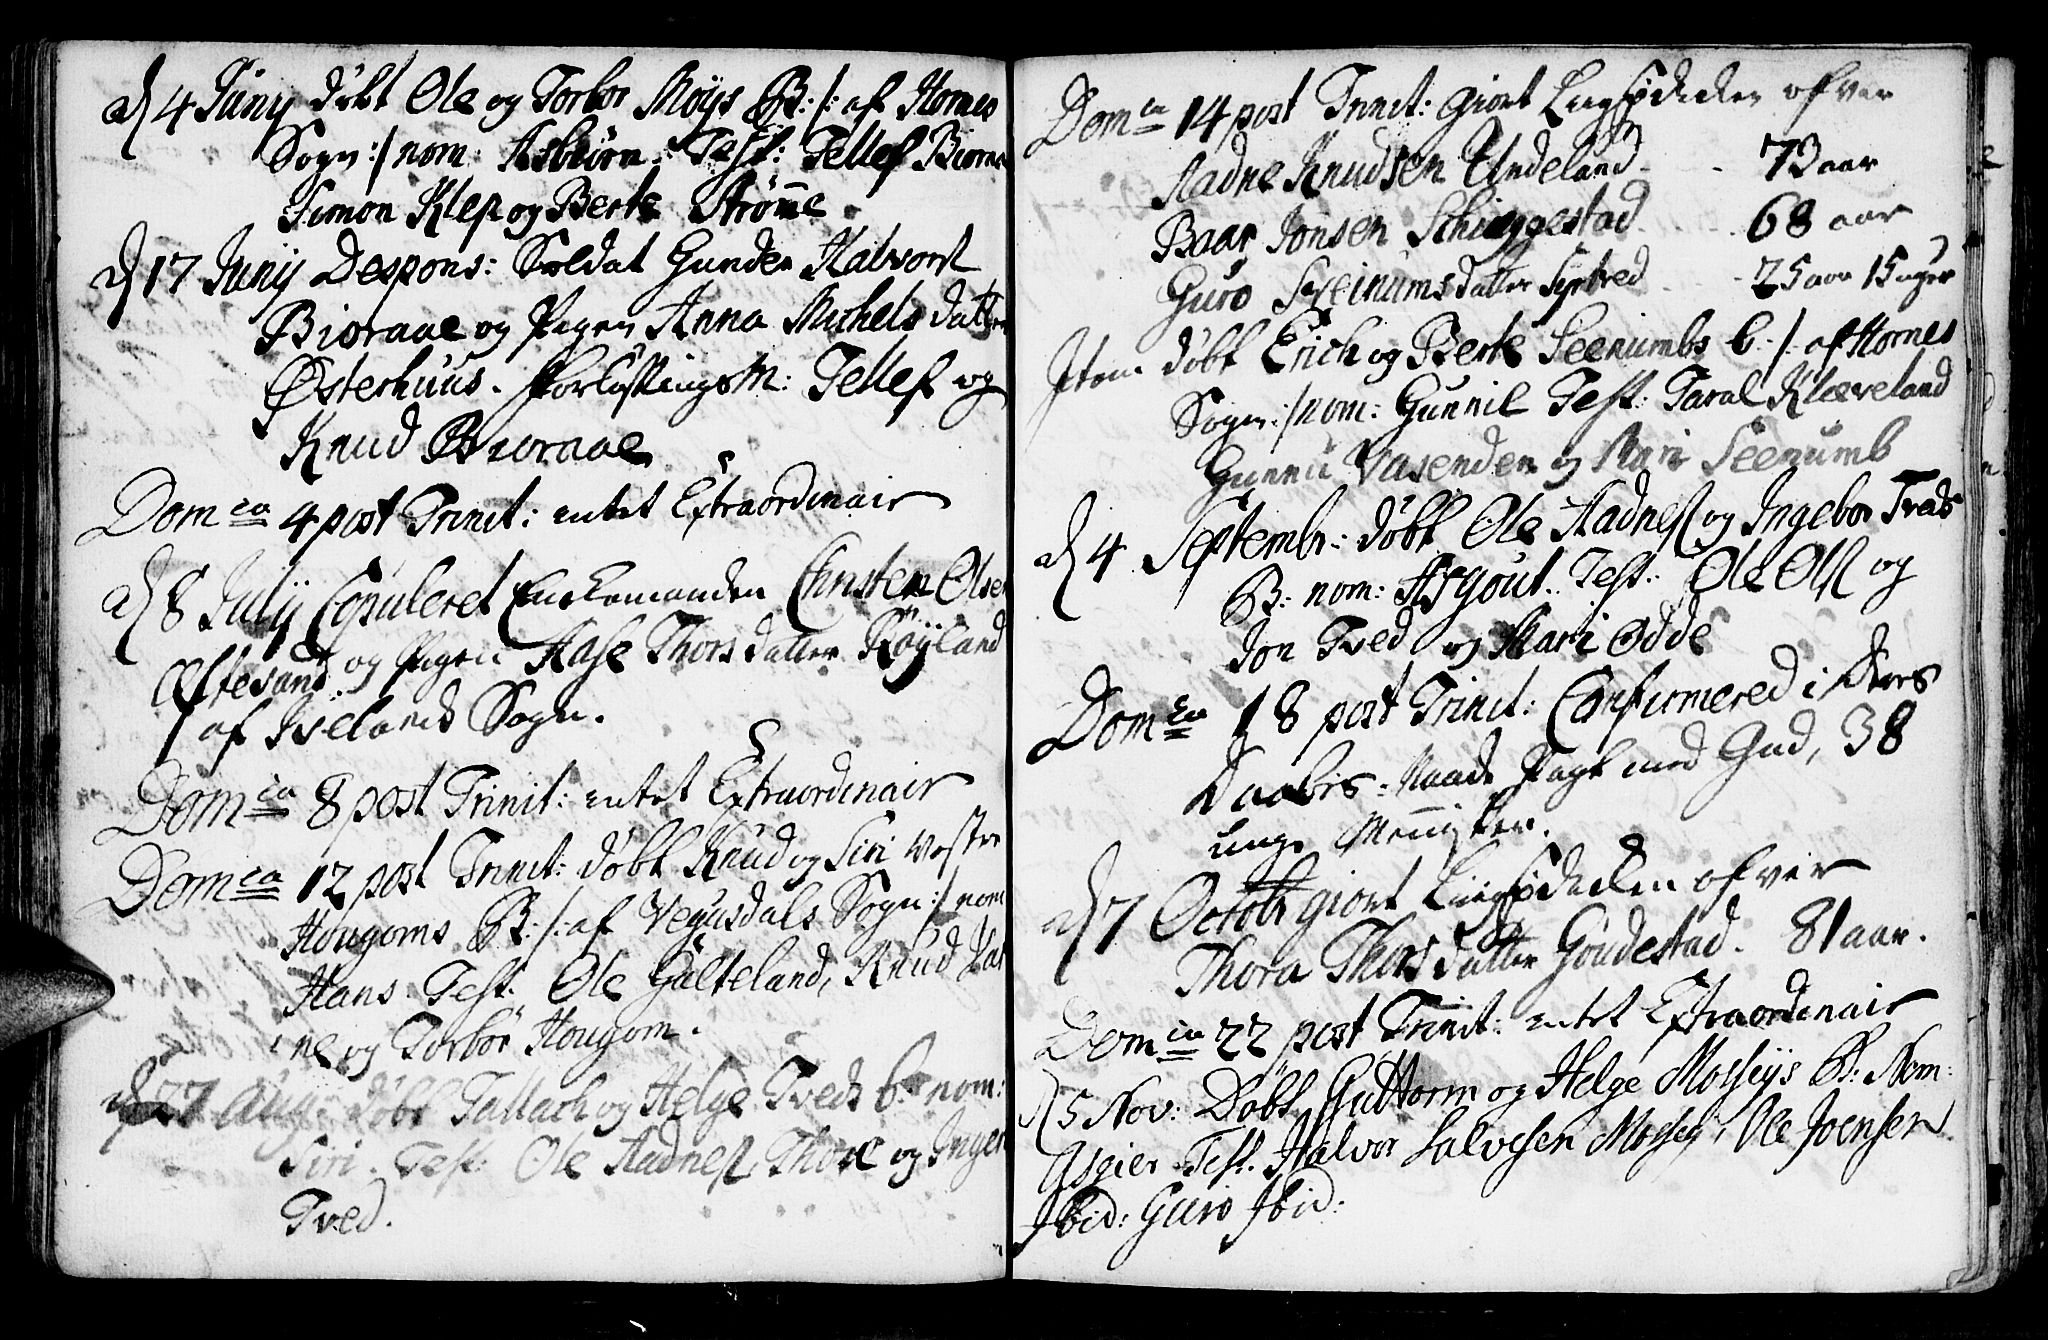 d 4 Junÿ döbt Ole og Torbor Moÿs B: /: af Hornes
Sogn :/ nom: Asbiörn. Test: Tellef Biorn
Simon Klep og Berte Strøm̄e
d 17 Junÿ Despons: Soldat Gunder Halvorss
Bioraae og Pigen Anna Michels datter
Østerhuus. Forlöftings M: Tellef og
Knud Bioraae
Dom ca 4 post Trinit: intet Extraordinair
d 8 Julÿ Copuleret Enckemanden Christen Olsen
og Pigen Aase Thors datter Röÿland
/ af Iselands Sogn.
Dom ca 8 post Trinit: intet Extraordinair
Dom ca 12 post Trinit: döbt Knud og Siri Vestre
Hougoms B: /: af Vegusdals Sogn :/ nom
Hans. Test. Ole Galteland, Knud
ne og Torbor Hougom.
d 27 Aug: döbt Tallach og Helge Tveds b: nom:
Siri. Test. Ole Aadness, Thore og Inger
Tved.
Dom ca 14 post Trinit: giort Liigprædicken ofver
Aadne Knudsen Undeland - - 73 aar
Baar Jonsen Schieggestad - - 68 aar
Guro datter Syrtved - - 25 aar 15 uger
Item döbt Erich og Berte Seenumbs b. /: af Hornes
Sogn :/ nom: Gunnil Test: Taral Klæveland
Gunnu Vasenden og Mari Seenumb
d 4 Septembr: döbt Ole Aadness og Ingebor Tveds
B: nom: Asgout. Test: Ole Olss og
Jon Tved og Mari Odde
Dom ca 18 post Trinit: Confirmered i deres
Daabis Naade Pagt med Gud, 38
unge Men̄isker.
d 7 Octobr giort Liigprædicken ofver
Thora Thors datter Goudestad. 81 aar.
Dom ca 22 post Trinit: intet Extraordinair
d 5 Nov: Döbt Guttorm og Helge Mosseÿs B: Nom:
Asgier Test. Halvor Salvesen Mossey, Ole Joensen
Ibid: Guro Ibid: